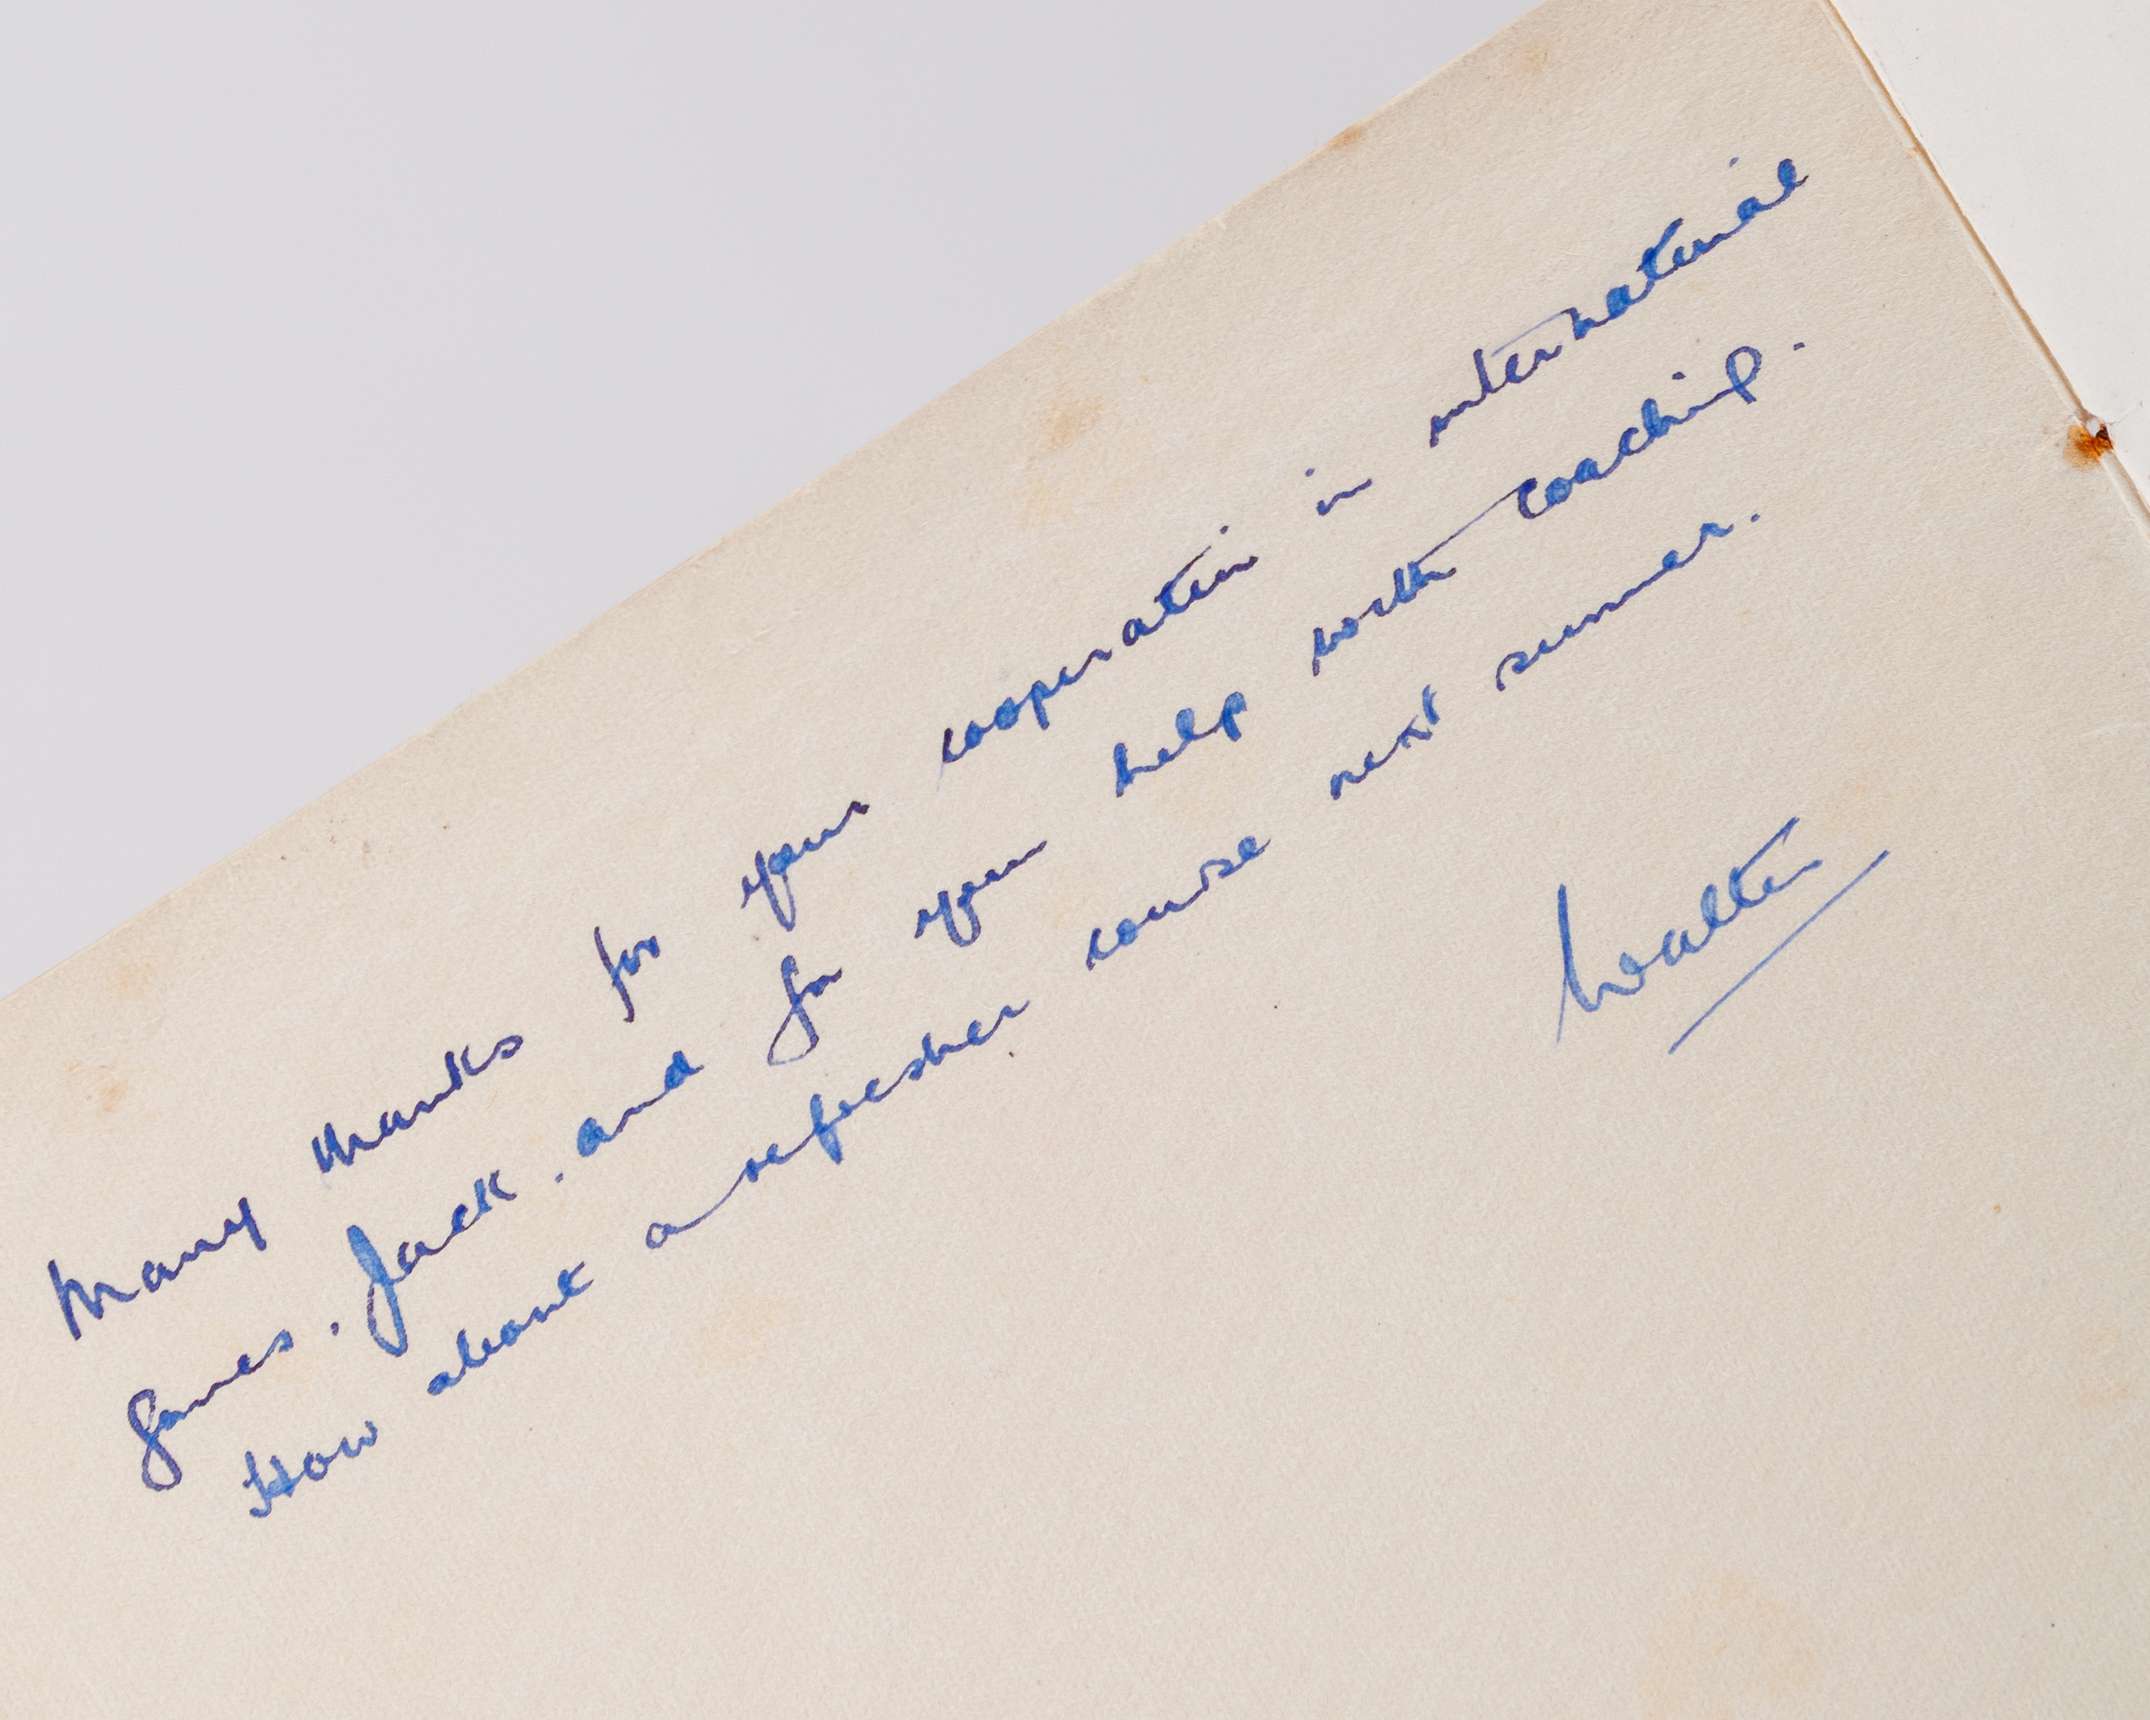 Many thanks for your cooperation in international
games. Jack. and for your help with coaching.
How about a refresher course next summer.
Walter